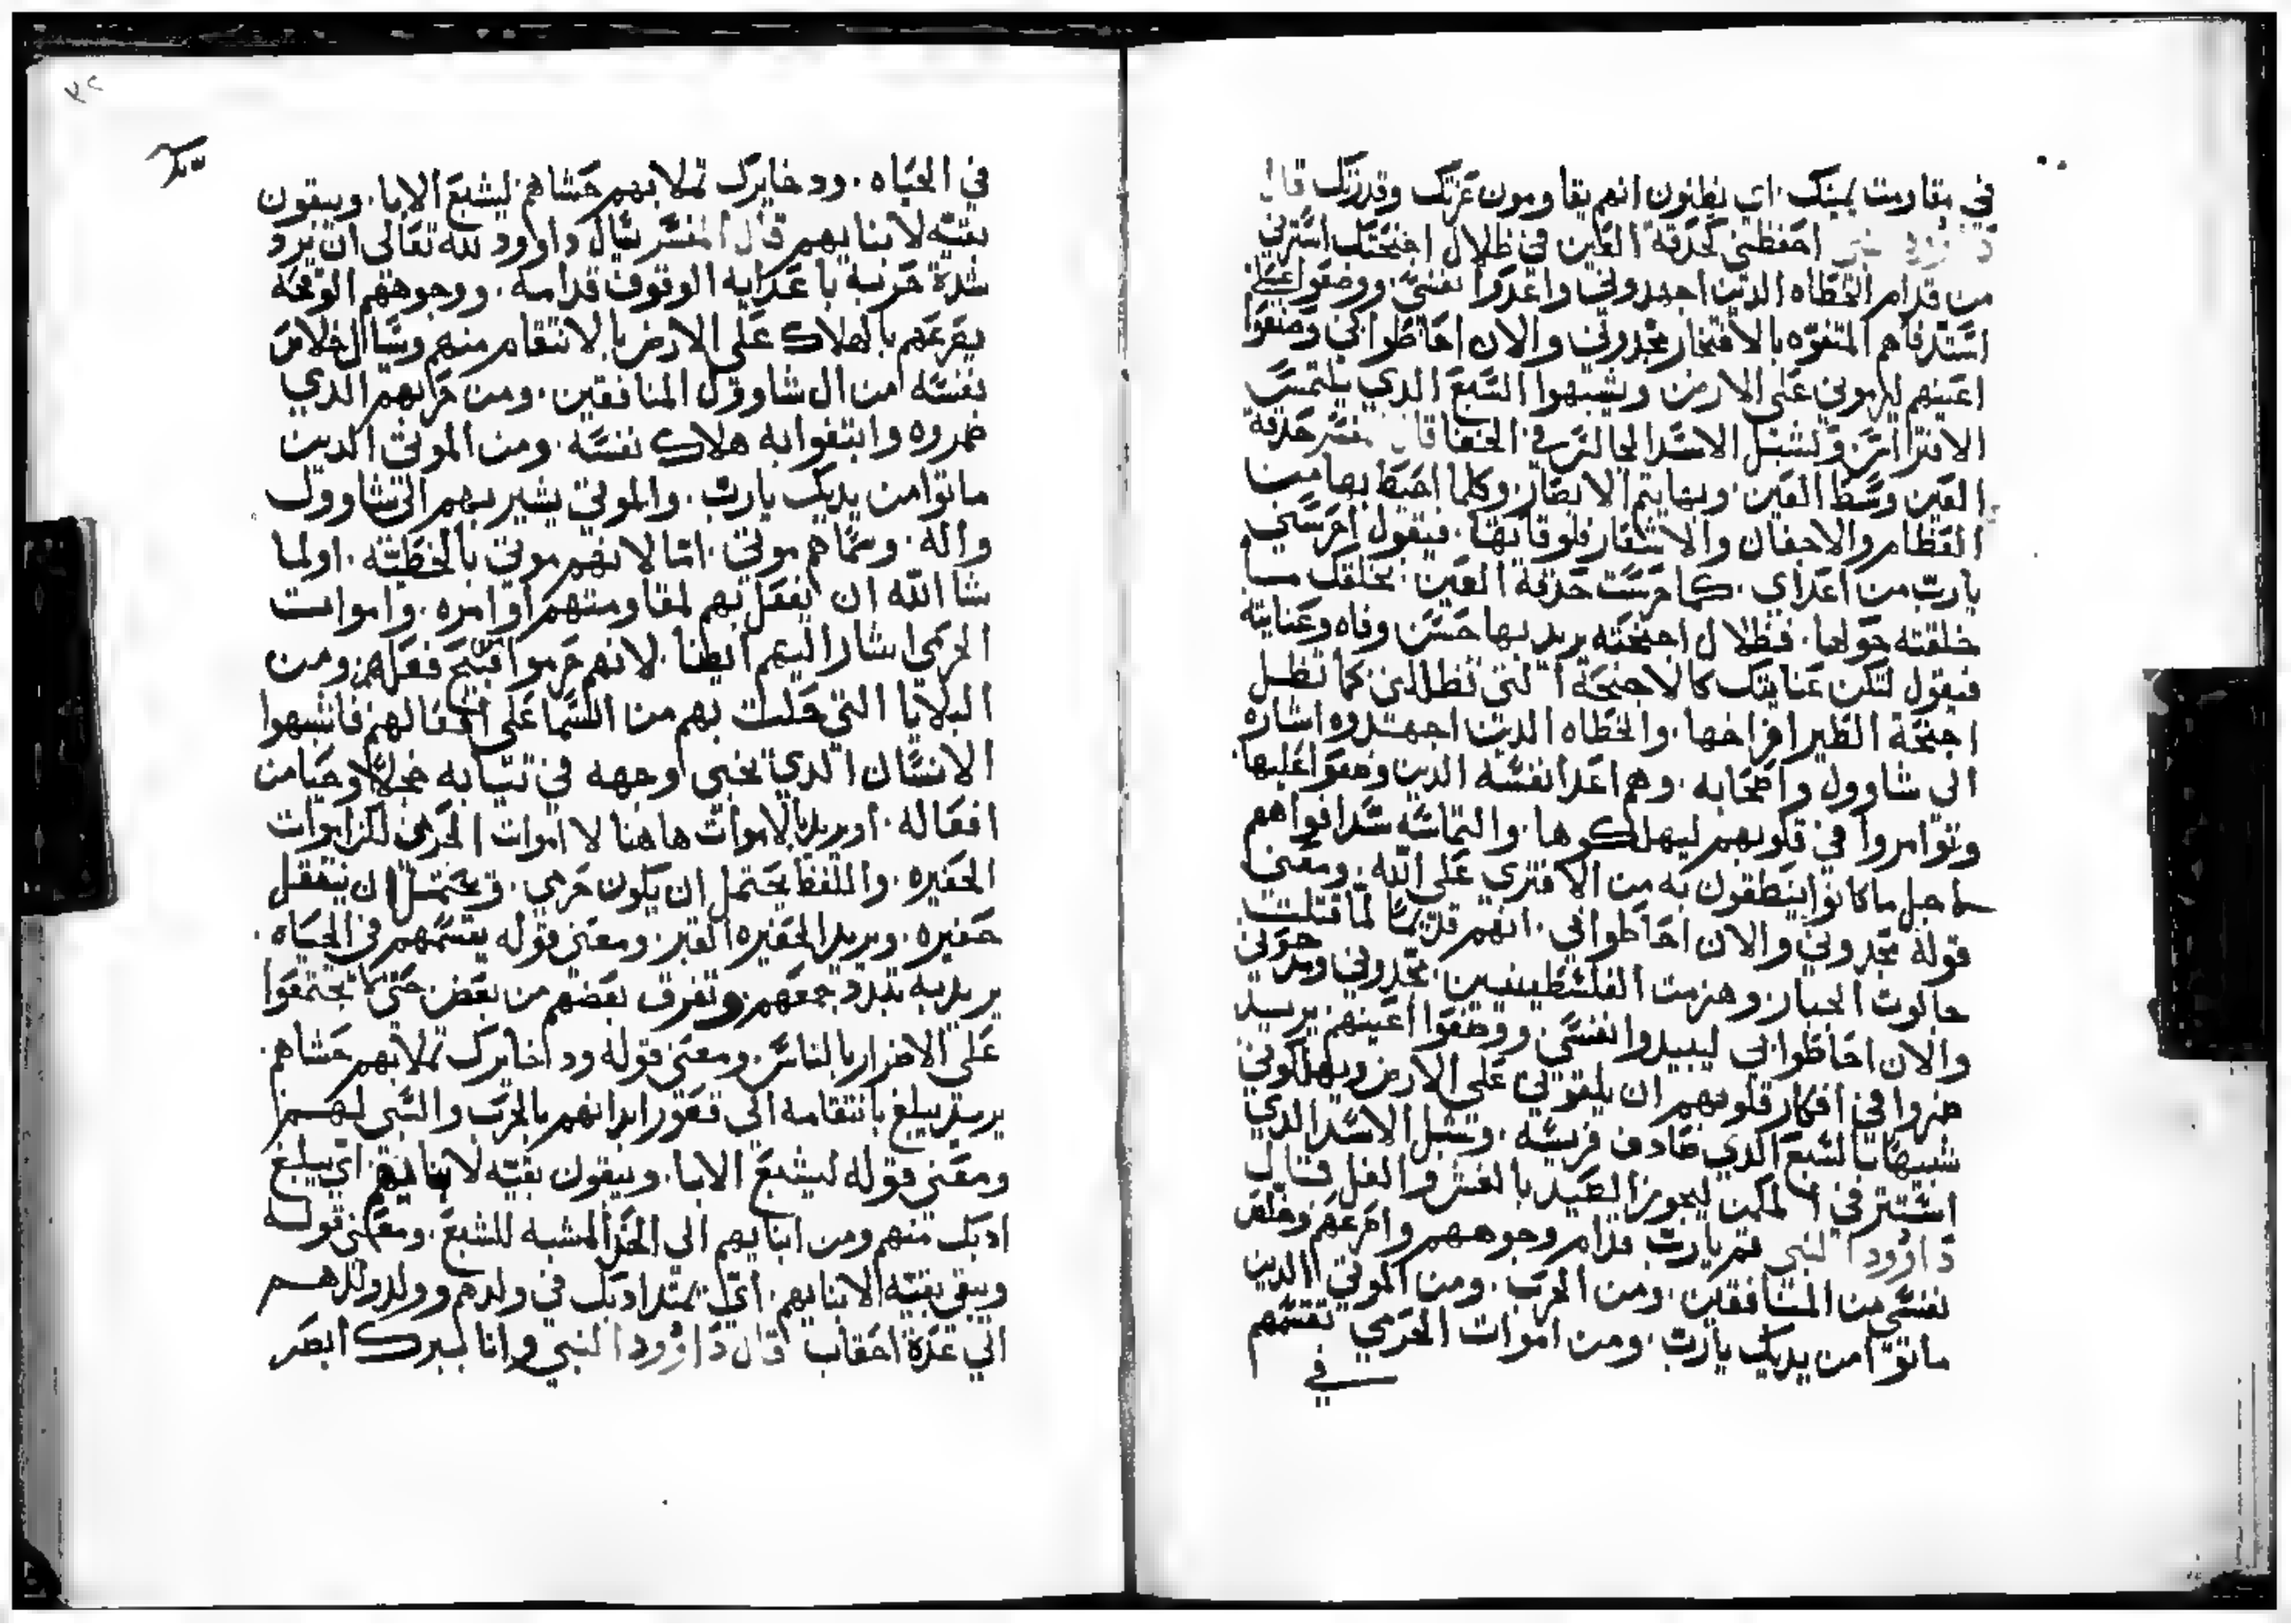 في مقاومت يمينك. اي يظنون انهم يقاومون عزتك وقدرتك قال
داوود النبي احفظني كحدقة العين في ظلال اجنحتك استرني
من قدام الخطاه الدين اجهدوني واعدوا نفسي. ووضعوا علي
استدفاهم المتفوه بالافتخار مجدوني والان احاطوا بي وضعوا
اعينهم ليرموني على الارض وشبهوا السبع الدي يلتمس
الافتراس وكشبل الاسد الجالس في الخفا قال المفسر حدقة
العين وسط العين. وبها يتم الابصار. وكلما احيط بها من
العظام والاجفان والاشفار فلوقايتها. فيقول احرسني
يارب من اعداي. كما حرست حدقة العين. بخلقك ما
خلقته حولها. فظلال اجنحته يريد بها حسن وفاه وعنايته
فيقول لتكن عنايتك كالاجنحة التي تظللني كما تظل
اجنحة الطير افراخها. والخطاه الدين اجهدوه اشاره
الي شاوول واصحابه. وهم اعدا نفسه الدين وضعوا عليها
وتوامروا في قلوبهم ليهلكوها. والتماسه سد افواههم
من اجل ما كانوا ينطقون به من الافتري على الله. ومعني
قوله مجدوني والان احاطوا بي. انهم قديما لما قتلت
جالوت الجبار وهزمت الفلسطينيين. مجدوني
والان احاطوا بي ليبيدوا نفسي ووضعوا اعينهم يريد
ضمروا في افكار قلوبهم ان يلقوني على الارض ويهلكوني
شبيها بالسبع الدي صادف فريسه. وشبل الاسد الدي
استتر في المكمن ليحوز الصيد بالغش والغل قال
داوود النبي قم يارب قدام وجوههم واصرعهم وخلص
نفسي من المنافقين. ومن الحرب. ومن الموتي الدين
ماتوا من يديك يارب. ومن اموات الحرمي تقسمهم
في
في الحياه. ودخايرك تملا بهم حشاهم ليشبع الابا. ويبقون
بقيه لابنايهم قال المفسر سال داوود لله تعالى ان يرد
شدة حربه باعدايه الوقوف قدامه. ووجوههم الوقحة
يصرعهم بالهلاك على الارض بالانتقام منهم وسال خلاص
نفسه من ال شاوول المنافقين. ومن حربهم الدي
ضمروه وابتغوا به هلاك نفسه. ومن الموتي الدين
ماتوا من يديك يارب. والموتي يشير بهم الي شاوول
واله. وسماهم موتي. اما لانهم موتي بالخطيئه. اولما
شا الله ان يفعل بهم لمقاومتهم اوامره. واموات
الحرمي اشار اليهم ايضا. لانهم حرموا قبيح فعلهم ومن
البلايا التي حلت بهم من السما على افعالهم فاشبهوا
الانسان الدي يخبي وجهه في تيابه خجلا وحيا من
افعاله. او يريد بالاموات هاهنا لا اموات الحرمي لكن اموات
الحفيره. واللفظ يحتمل ان يكون حرمي. ويحتمل ان ينتقل
حفيره. ويريد الحفيره القبر. ومعنى قوله يقسمهم في الحياه.
يريد به تبدد جمعهم وتفرق بعضهم من بعض. حتى لا يجتمعوا
على الاضرار بالناس. ومعنى قوله ودخايرك تملا بهم حشاهم.
يريد يبلغ بانتقامه الي قعور ابدانهم بالحرب والسبي لهم
ومعنى قوله ليشبع الابا. ويبقون بقيه لابنايهم. اي يبلغ
ادبك منهم ومن ابنايهم الي الحد المشبه للشبع. ومعنى قوله
ويبقى بقيه لابنايهم. اي يمتد ادبك في ولدهم وولد ولدهم
الي عدة احقاب قال داوود النبي وانا ببرك ابصر